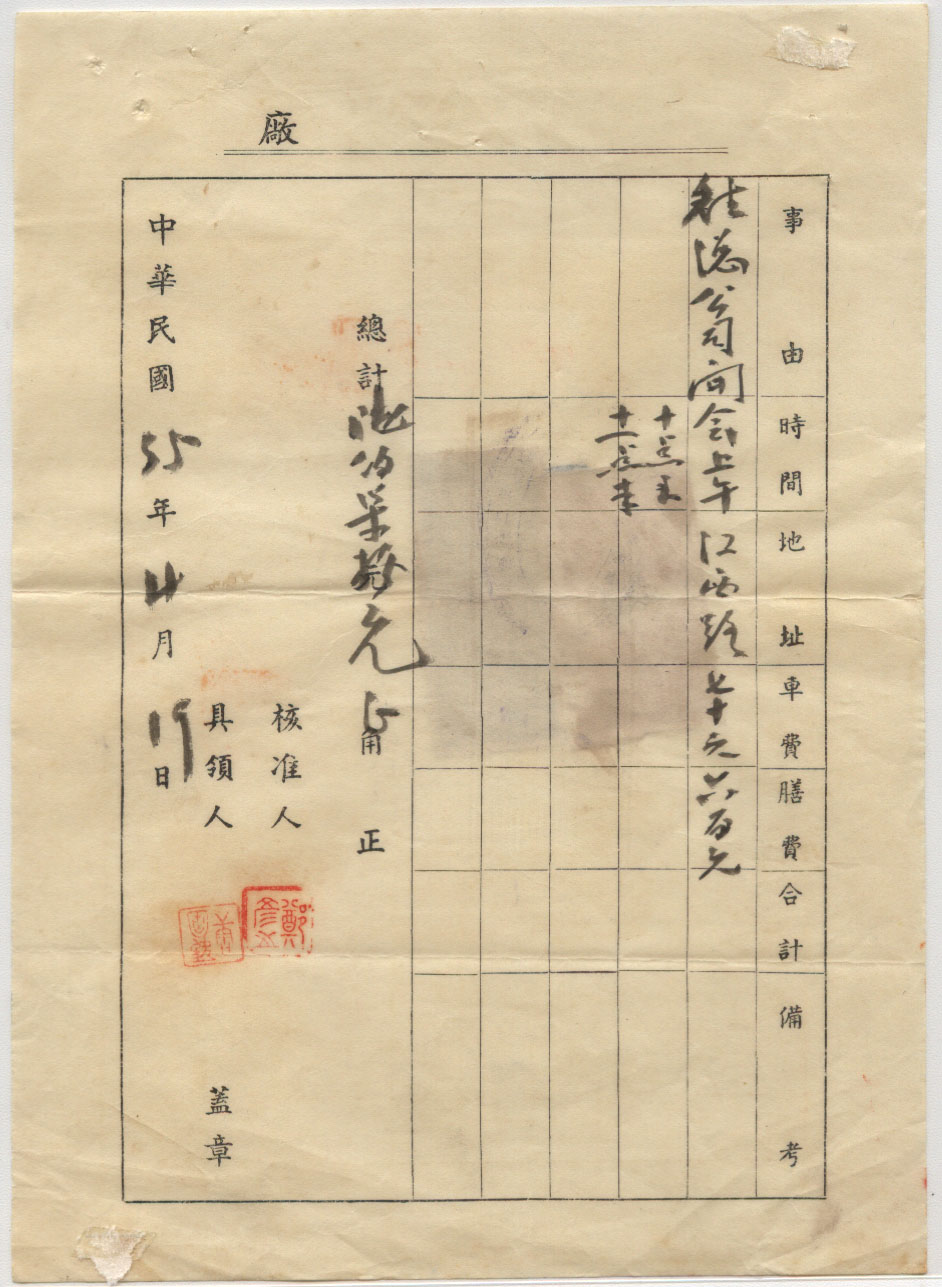 廠
事由 時間 地址 車費 膳費 合計 備考
往總公司開会上午 江西路 七十元 六百元
十点来
十一点半
總計 陆佰柒拾元 角正
核准人
具領人 蓋章
中華民國 55 年 4 月 19 日
鄭